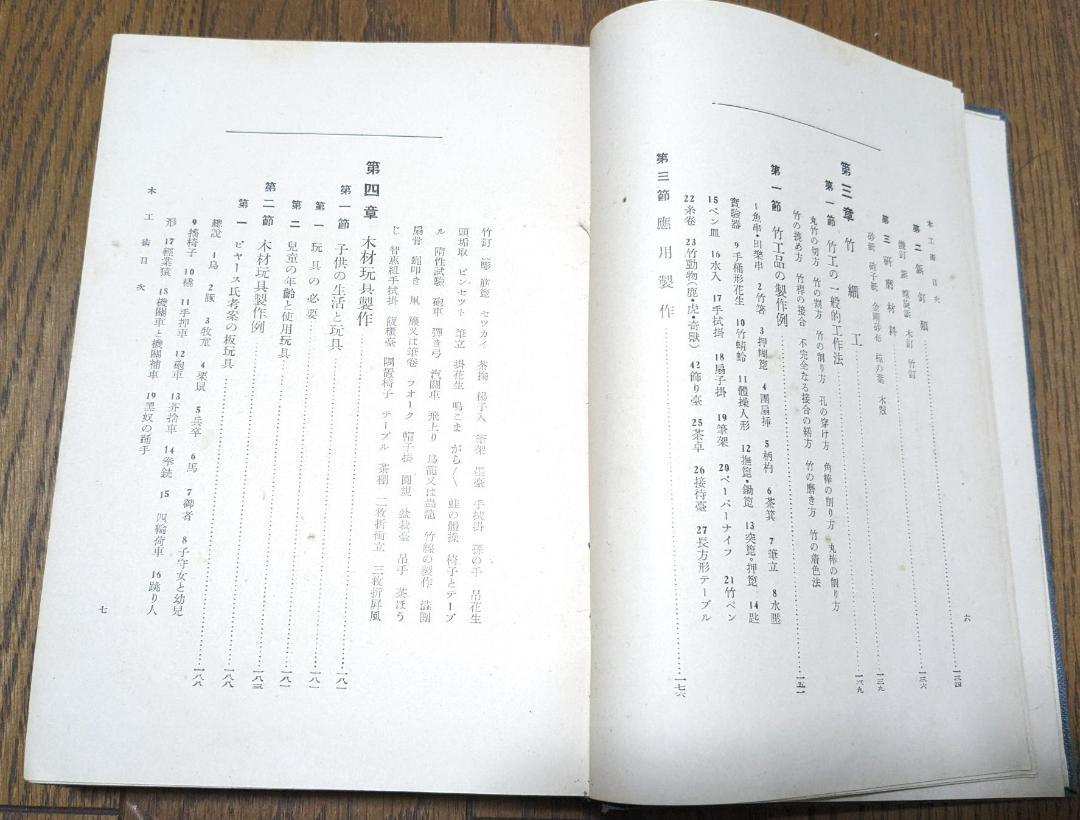 木工術目次
六
第二 鋲釘類……一三四
鐵釘 鋲 螺旋鋲 木釘 竹釘
第三 研磨材料……一三六
砂紙 硝子紙 金剛砂布 椋の葉 木賊
第三章 竹細工……一三九
第一節 竹工の一般的工作法……一三九
丸竹の切方 竹の割方 竹の削り方 孔の穿け方 角棒の削り方 丸棒の削り方
竹の撓め方 竹桿の接合 不完全なる接合の繕方 竹の磨き方 竹の着色法
第一節 竹工品の製作例……一五一
1魚串・田樂串 2竹箸 3押糊箆 4團扇挿 5柄杓 6茶箕 7筆立 8水壓
實驗器 9手桶形花生 10竹蜻蛉 11體操人形 12撫箆・鋤箆 13突箆・押箆 14匙
15ペン皿 16水入 17手拭掛 18扇子掛 19筆架 20ペーパーナイフ 21竹ペン
22糸卷 23竹動物(鹿・虎・奇獸) 42飾り臺 25茶卓 26接待臺 27長方形テーブル
第三節 應用製作……一七六
竹釘 一彫 筋箆 セツカイ 茶掬 楊子入 筆架 墨臺 手拭掛 孫の手 吊花生
頭垢取 ピンセツト 筆立 掛花生 鳴こま がら〱 蛙の體操 椅子とテーブ
ル 隋性試驗 砲車 彈き弓 汽關車 飛上り 鳥籠又は蟲籠 竹簾の製作 澁團
扇骨 蠅叩き 凧 簾又は筆卷 フオーク 帽子掛 圓規 盆栽臺 吊手 茶ほう
じ 智惠組手拭掛 飯櫃臺 隅置椅子 テーブル 茶棚 二枚折衝立 三枚折屏風
第四章 木材玩具製作
第一節 子供の生活と玩具……一八一
第一 玩具の必要……一八一
第二 兒童の年齡と使用玩具……一八一
第二節 木材玩具製作例……一八三
第一 ピヤース氏考案の板玩具……一八八
總說 1鳥 2豚 3牧童 4栗鼠 5兵卒 6馬 7御者 8子守女と幼兒……一八八
9搖椅子 10橇 11手押車 12砲車 13芥捨車 14拳銃 15四輪荷車 16跳り人
形 17輕業猿 18機關車と機關補車 19黑奴の踊手
木工術目次
七